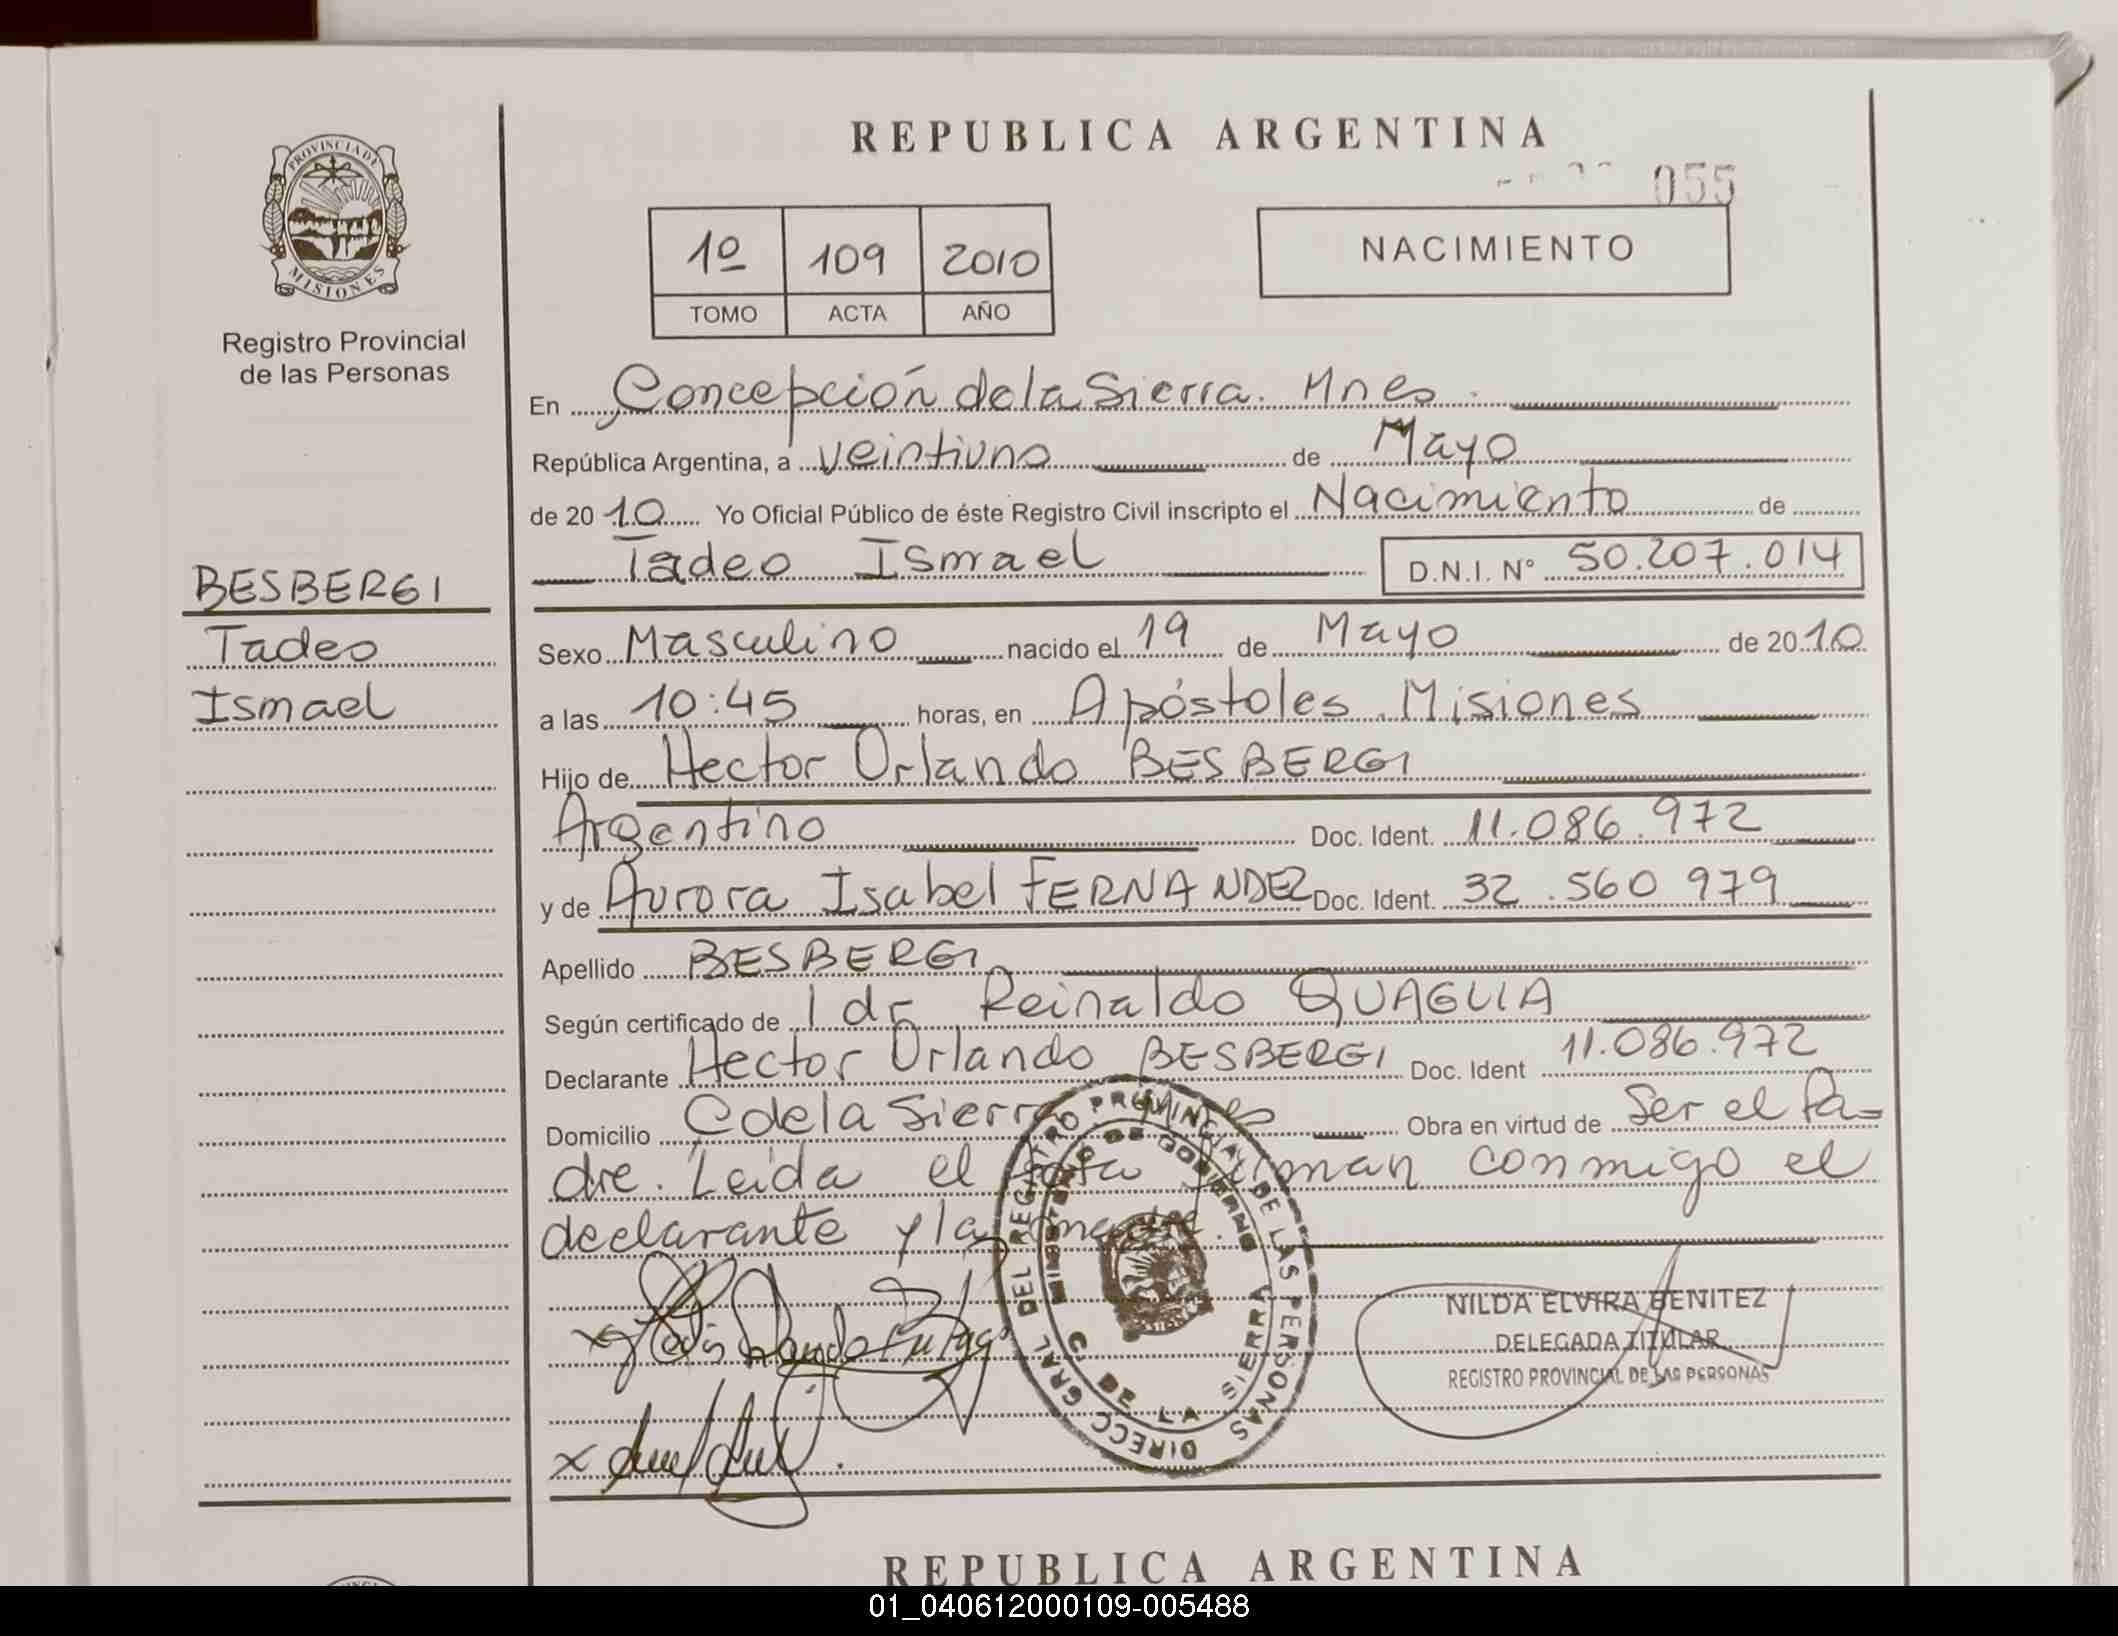 REPUBLICA ARGENTINA
055
PROVINCIA DE
MISIONES
Registro Provincial
de las Personas
1º 109 2010
TOMO ACTA AÑO
NACIMIENTO
En Concepción de la Sierra. Mnes.
República Argentina, a veintiuno de Mayo
de 2010 Yo Oficial Público de éste Registro Civil inscripto el Nacimiento de
Tadeo Ismael D.N.I. Nº 50.207.014
BESBERGI
Tadeo
Ismael
Sexo Masculino nacido el 19 de Mayo de 2010
a las 10:45 horas, en Apóstoles. Misiones
Hijo de Hector Orlando BESBERGI
Argentino Doc. Ident. 11.086.972
y de Aurora Isabel FERNANDEZ Doc. Ident. 32.560 979
Apellido BESBERGI
Según certificado de l dr Reinaldo QUAGLIA
Declarante Hector Orlando BESBERGI Doc. Ident 11.086.972
Domicilio C de la Sierra Mnes Obra en virtud de Ser el Pa=
dre. Leida el Acta firman conmigo el
declarante y la madre.
DIRECC GRAL DEL REGISTRO PROVINCIAL DE LAS PERSONAS
MINISTERIO DE GOBIERNO
C. DE LA SIERRA
NILDA ELVIRA BENITEZ
DELEGADA TITULAR
REGISTRO PROVINCIAL DE LAS PERSONAS
REPUBLICA ARGENTINA
01_040612000109-005488